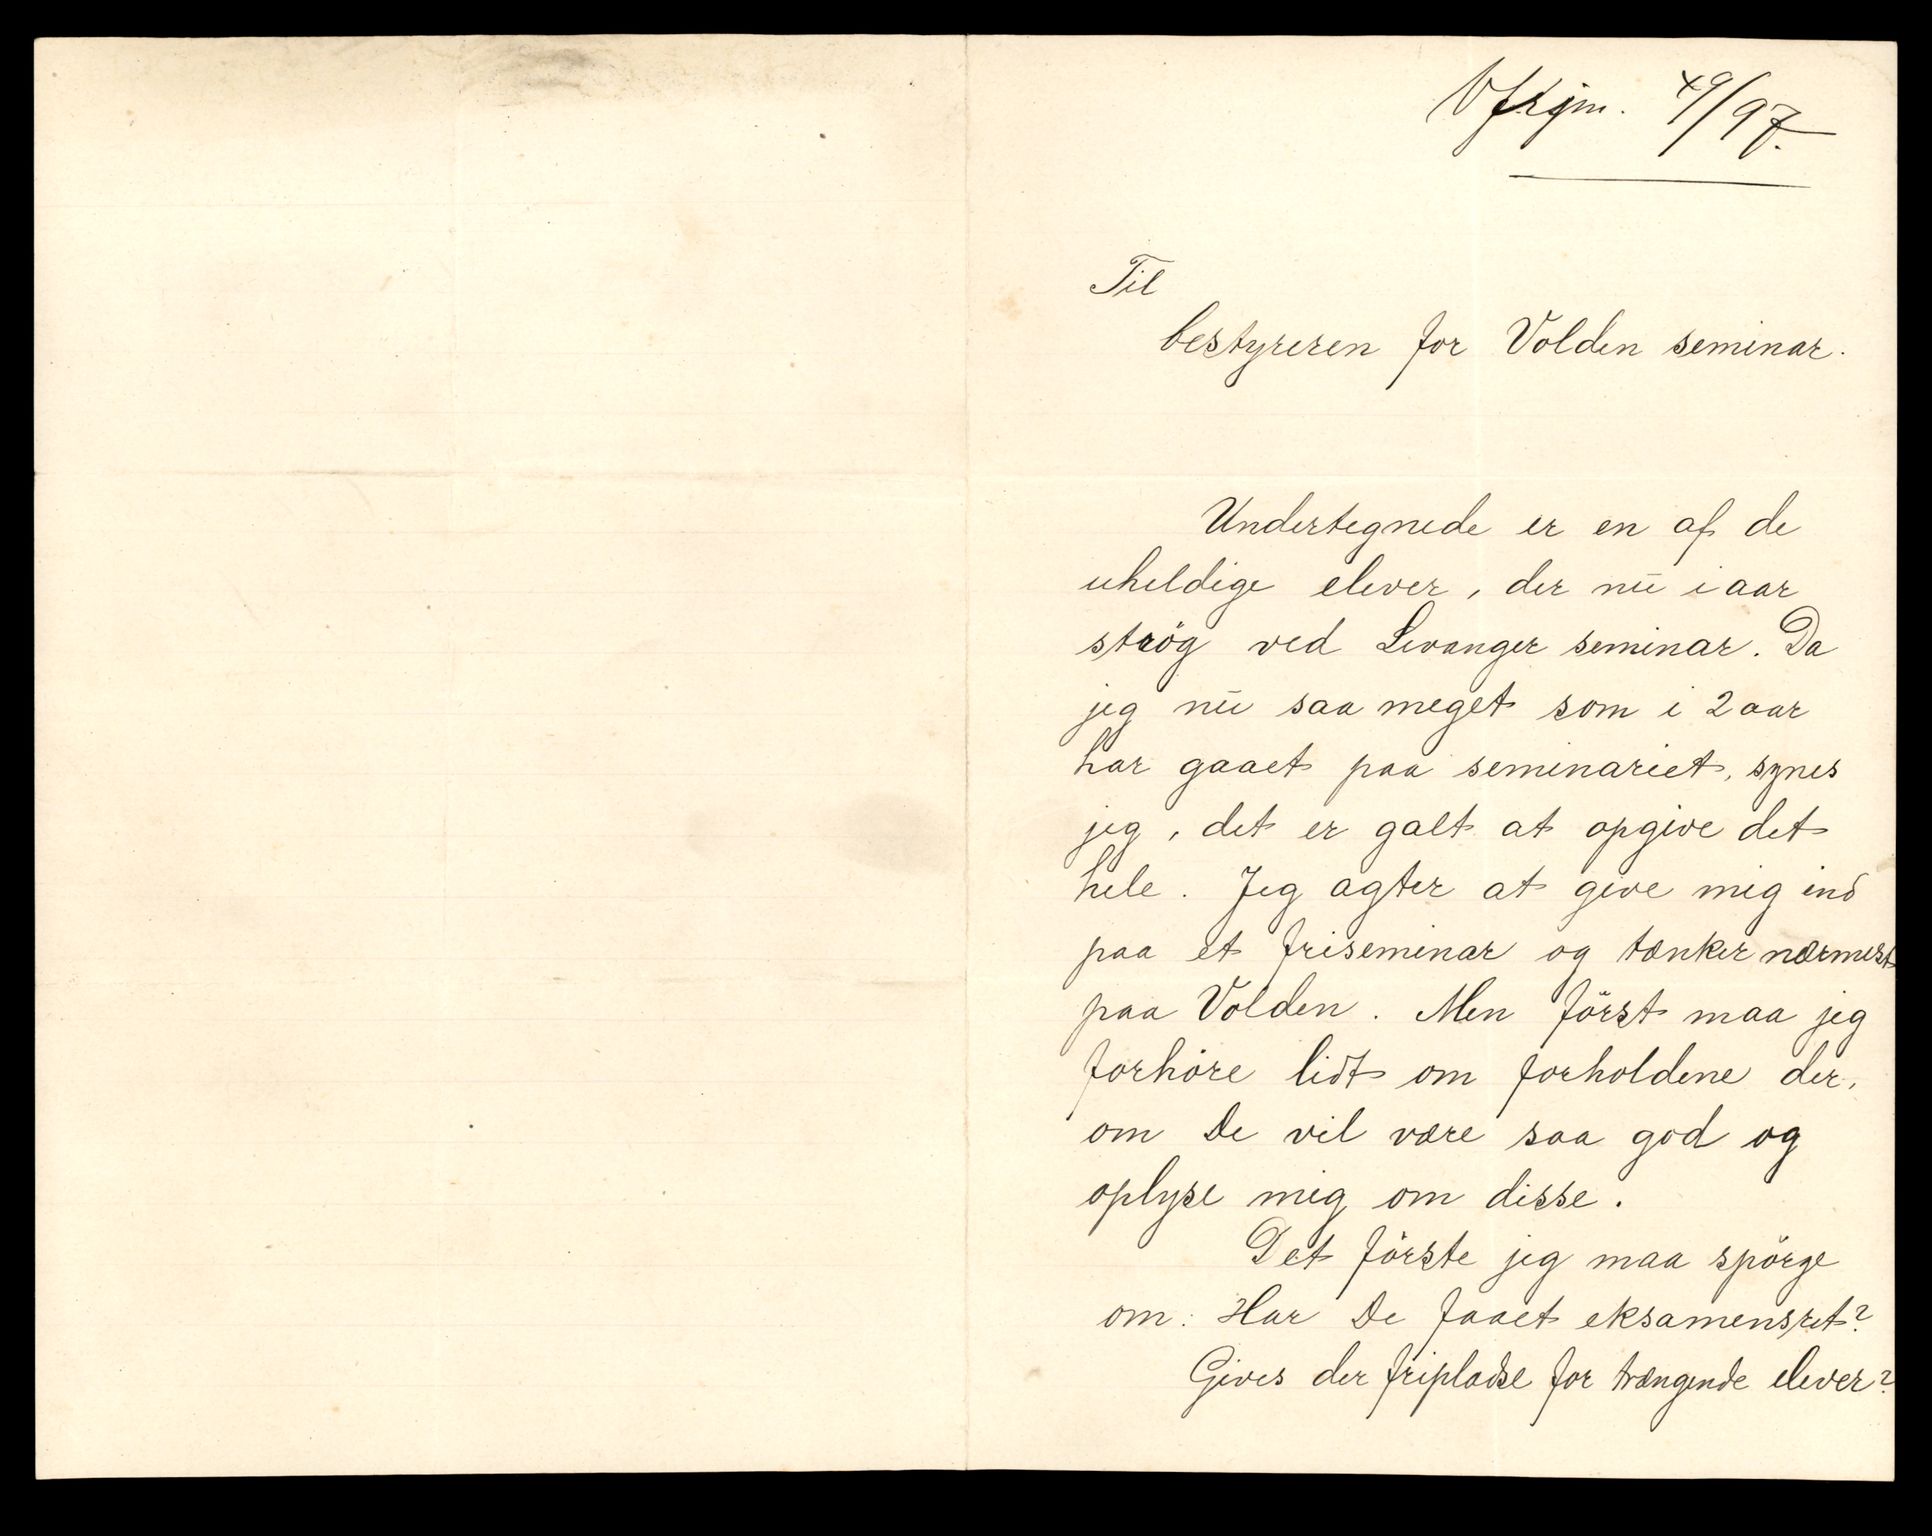 49/97.
Til
bestyreren for Volden seminar.
Undertegnede er en af de
uheldige elever, der nū i aar
strög ved Levanger seminar. Da
jeg nū saa meget som i 2 aar
har gaaet paa seminariet, synes
jeg, det er galt at opgive det
hele. Jeg agter at give mig ind
paa et friseminar og tænker nærmest
paa Volden. Men först maa jeg
forhöre lidt om forholdene der,
om De vil være saa god og
oplyse mig om disse.
Det förste jeg maa spörge
om: Har De faaet eksamensret?
Gives der fripladse for trængende elever?